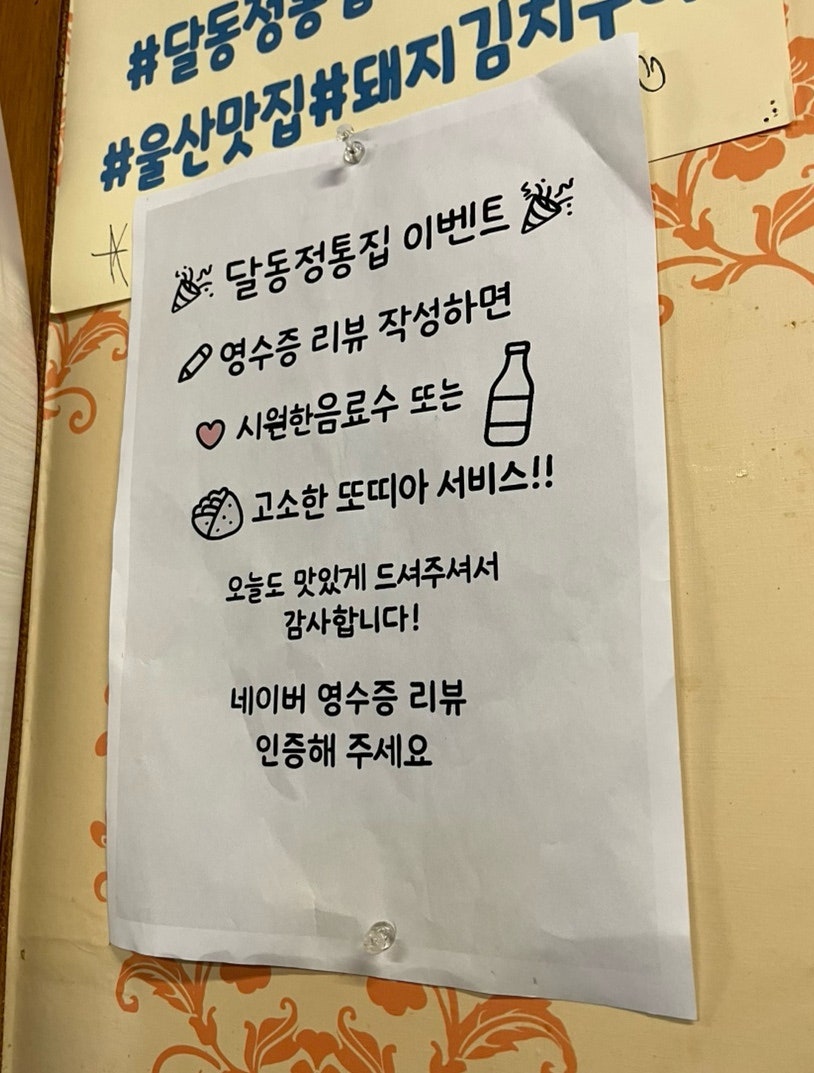 #달동정통집
#울산맛집#돼지김치구이
달동정통집 이벤트
영수증 리뷰 작성하면
시원한음료수 또는
고소한 또띠아 서비스!!
오늘도 맛있게 드셔주셔서
감사합니다!
네이버 영수증 리뷰
인증해 주세요